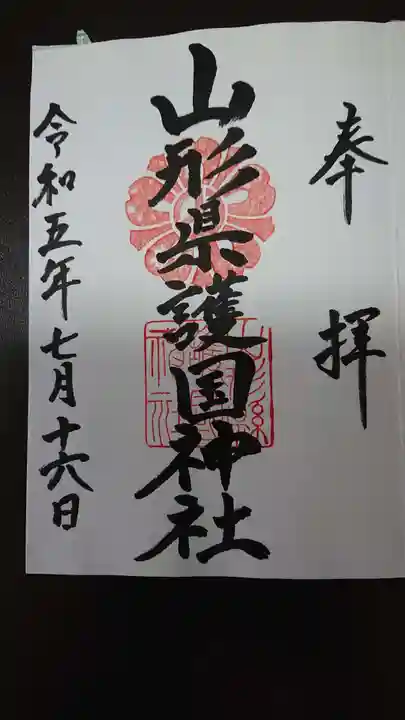 奉拝
山形県護国神社
令和五年七月十六日